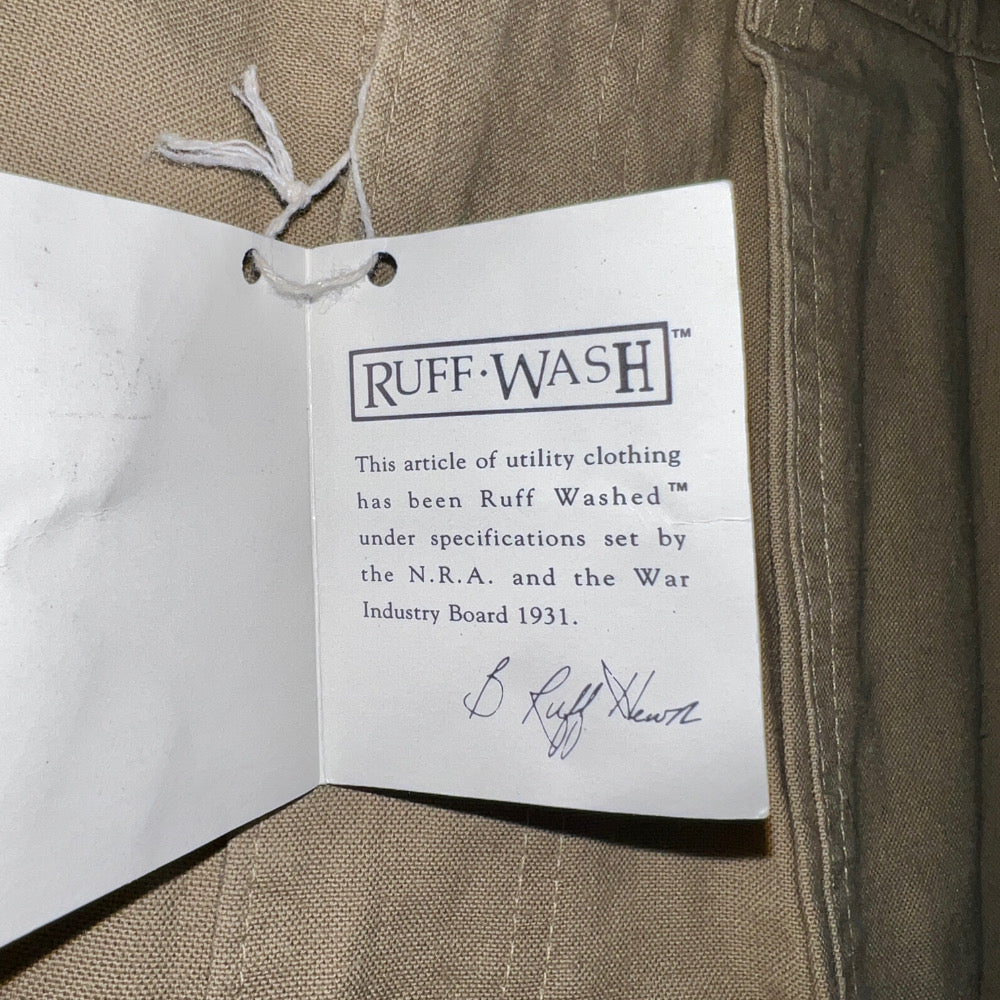 RUFF·WASH™
This article of utility clothing
has been Ruff Washed™
under specifications set by
the N.R.A. and the War
Industry Board 1931.
B Ruff Hewn